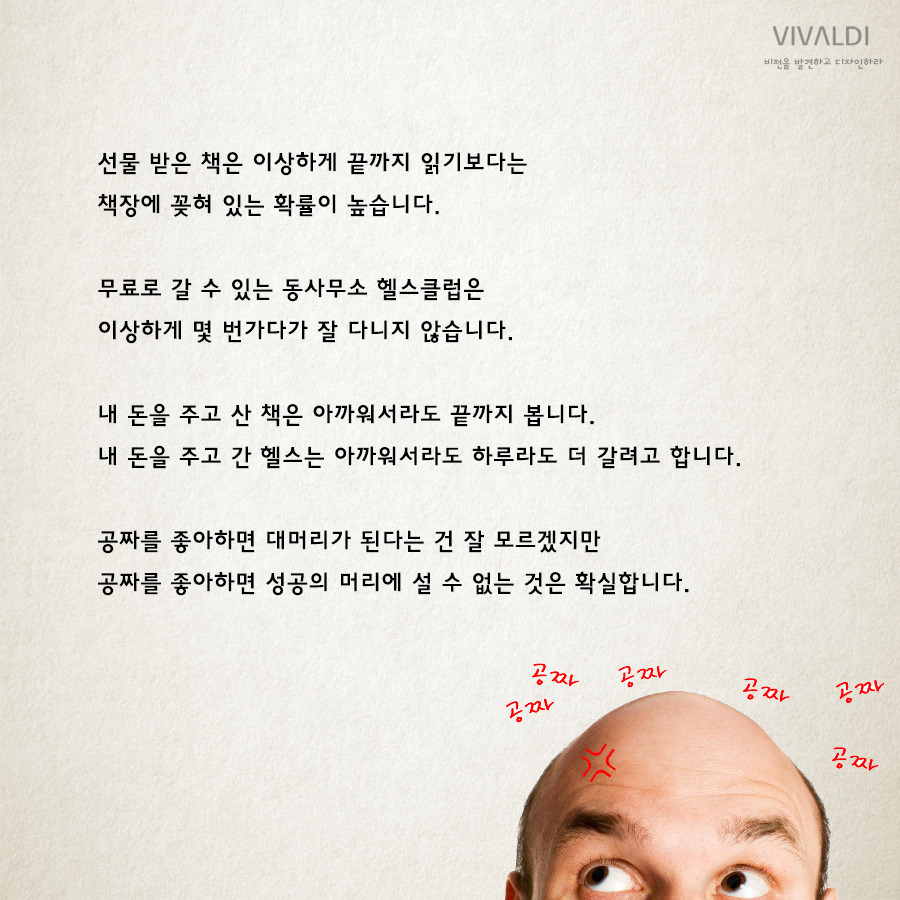 VIVALDI
비전을 발견하고 디자인하라
선물 받은 책은 이상하게 끝까지 읽기보다는
책장에 꽂혀 있는 확률이 높습니다.
무료로 갈 수 있는 동사무소 헬스클럽은
이상하게 몇 번가다가 잘 다니지 않습니다.
내 돈을 주고 산 책은 아까워서라도 끝까지 봅니다.
내 돈을 주고 간 헬스는 아까워서라도 하루라도 더 갈려고 합니다.
공짜를 좋아하면 대머리가 된다는 건 잘 모르겠지만
공짜를 좋아하면 성공의 머리에 설 수 없는 것은 확실합니다.
공짜
공짜
공짜
공짜
공짜
공짜